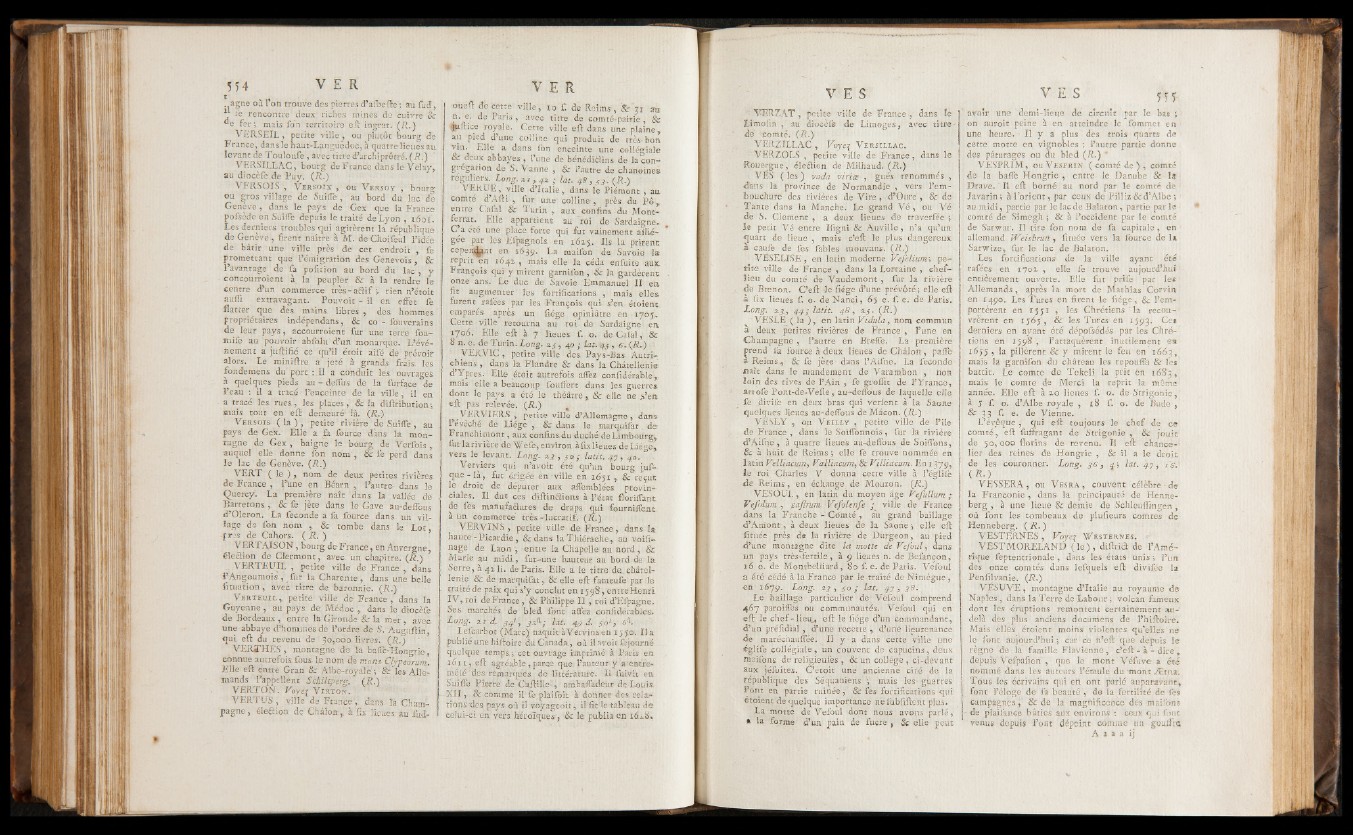 554 V E R
agne où l'on trouve des pierres d'asbeste; au sud,
il se rencontre deux riches mines de cuivre &
de fer; mais son territoire est ingrat. (R.)
VERSEIL, petite ville, ou plutôt bourg de
France, dans le haut-Languedoc, à quatre lieues au
levant de Toulouse, avec titre d'archiprêtré. (R.)
VERSILLAC, bourg de France dans le Velay,
au diocèse de Puy. (R.)
VERSOIS, VERSOIX, ou VERSOY, bourg
ou gros village de Suisse, au bord du lac de
Genève, dans le pays de Gex que la France
possède en Suisse depuis le traité de Lyon, 1601.
Les derniers troubles qui agitèrent la république
de Genève, firent naître à M. de Choiseul l'idée
de bâtir une ville près de cet endroit, se
promettant que l'émigration des Genevois, &
l'avantage de sa position au bord du lac, y
concourroient à la peupler & à la rendre le
centre d'un commerce très-actif; rien n'étoit
aussi extravagant. Pouvoit-il en effet se
flatter que des mains libres, des hommes
propriétaires indépendans, & co-souverains
de leur pays, accourroient sur une terre sou-
mise au pouvoir absolu d'un monarque. L'évé-
nement a justifié ce qu'il étoit aisé de prévoir
alors. Le ministre a jeté à grands frais les
fondemens du port: il a conduit les ouvrages
à quelques pieds au-dessus de la surface de
l'eau: il a tracé l'enceinte de la ville, il en
a tracé les rues, les places, & la distribution;
mais tout en est demeuré là. (R.)
VERSOIS (la), petite rivière de Suisse, au
pays de Gex. Elle a sa source dans la mon-
tagne de Gex, baigne le bourg de Versois,
auquel elle donne son nom, & se perd dans
le lac de Genève. (R.)
VERT (le), nom de deux petites rivières
de France, l'une en Béarn, l'autre dans le
Quercy. La première naît dans la vallée de
Barretons, & se jète dans le Gave au-dessous
d'Oleron. La seconde a sa source dans un vil-
lage de son nom, & tombe dans le Lot,
près de Cahors. (R.)
VERTAISON, bourg de France, en Auvergne,
élection de Clermont, avec un chapitre. (R.)
VERTEUIL, petite ville de France, dans
l'Angoumois, sur la Charente, dans une belle
situation, avec titre de baronnie. (R.)
VERTEUIL, petite ville de France, dans la
Guyenne, au pays de Médoc, dans le diocèse
de Bordeaux, entre la Gironde & la mer, avec
une abbaye d'hommes de l'ordre de S. Augustin,
qui est du revenu de 30,000 livres. (R.)
VERTHES, montagne de la basse-Hongrie,
connue autrefois sous le nom de mons Clypeorum.
Elle est entre Gran & Albe-royale; & les Alle-
mands l'appellent Schilsperg. (R.)
VERTON. Voyez VIRTON.
VERTUS, ville de France, dans la Cham-
pagne, élection de Châlon, à six lieues au sud-
V E R
ouest de cette ville, 10 s. de Reims, & 31 au
n. e. de Paris, avec titre de comté-pairie, &
justice royale. Cette ville est dans une plaine,
au pied d'une colline qui produit de très-bon
vin. Elle a dans son enceinte une collégiale
& deux abbayes, l'une de bénédictins de la con-
grégation de S. Vanne, & l'autre de chanoines
réguliers. Long. 21, 42; lat. 48, 53. (R.)
VERUE, ville d'Italie, dans le Piémont, au
comté d'Asti, sur une colline, près du Pô,
entre Casal & Turin, aux confins du Mont-
ferrat. Elle appartient au roi de Sardaigne.
C'a été une place forte qui fut vainement assié-
gée par les Espagnols en 1625. Ils la prirent
cependant en 1639. La maison de Savoie la
reprit en 1642, mais elle la céda ensuite aux
François qui y mirent garnison, & la gardèrent
onze ans. Le duc de Savoie Emmanuel II en
fit augmenter les fortifications, mais elles
furent rasées par les François qui s'en étoient
emparés après un siége opiniâtre en 1705.
Cette ville retourna au roi de Sardaigne en
1706. Elle est à 7 lieues s. o. de Casal, &
8 n. e. de Turin. Long. 25, 40; lat. 45, 6. (R.)
VERVIC, petite ville des Pays-Bas Autri-
chiens, dans la Flandre & dans la Châtellenie
d'Ypres. Elle étoit autrefois assez considérable,
mais elle a beaucoup souffert dans les guerres
dont le pays a été le théâtre, & elle ne s'en
est pas relevée. (R.)
VERVIERS, petite ville d'Allemagne, dans
l'évêché de Liége, & dans le marquisat de
Franchimont, aux confins du duché de Limbourg,
sur la rivière de Wese, environ à six lieues de Liége,
vers le levant. Long. 23, 50; latit. 47, 40.
Verviers qui n'avoit été qu'un bourg jus-
que-là, fut érigée en ville en 1651, & reçut
le droit de députer aux assemblées provin-
ciales. Il dut ces distinctions à l'état florissant
de ses manufactures de draps qui fournissent
à un commerce très-lucratif. (R.)
VERVINS, petite ville de France, dans la
haute-Picardie, & dans la Thiérache, au voisi-
nage de Laon, entre la Chapelle au nord, &
Marle au midi, sur une hauteur au bord de la
Serre, à 42 li. de Paris. Elle a le titre de châtel-
lenie & de marquisat, & elle est fameuse par le
traité de paix qui s'y conclut en 1598, entre Henri
IV, roi de France, & Philippe II, roi d'Espagne.
Ses marchés de bled sont assez considérables.
Long. 21 d. 34', 32"; lat. 49 d. 50', 6".
Lescarbot (Marc) naquit à Vervins en 1550. Il a
publié une histoire du Canada, où il avoit séjourné
quelque temps; cet ouvrage imprimé à Paris en
1611, est agréable, parce que l'auteur y a entre-
mêlé des remarques de littérature. Il suivit en
Suisse Pierre de Castille, ambassadeur de Louis
XIII, & comme il se plaisoit à donner des rela-
tions des pays où il voyageoit, il fit le tableau de
celui-ci en vers héroïques, & le publia en 1618.
V E S
VERZAT, petite ville de France, dans le
Limosin, au diocèse de Limoges, avec titre
de comté. (R.)
VERZILLAC, Voyez VERSILLAC.
VERZOLS, petite ville de France, dans le
Rouergue, élection de Milhaud. (R.)
VÉS (les) vada viriæ, gués renommés,
dans la province de Normandie, vers l'em-
bouchure des rivières de Vire, d'Oure, & de
Tante dans la Manche. Le grand Vé, ou Vé
de S. Clement, a deux lieues de traversée;
le petit Vé entre Isigni & Auville, n'a qu'un
quart de lieue, mais c'est le plus dangereux
à cause de ses sables mouvans. (R.)
VESELISE, en latin moderne Veselium; pe-
tite ville de France, dans la Lorraine, chef-
lieu du comté de Vaudemont, sur la rivière
de Brenon. C'est le siége d'une prévôté; elle est
à six lieues s. o. de Nanci, 65 e. s. e. de Paris.
Long. 23, 44; latit. 48, 25. (R.)
VESLE (la), en latin Vidula, nom commun
à deux petites rivières de France, l'une en
Champagne, l'autre en Bresse. La première
prend sa source à deux lieues de Châlon, passe
à Reims, & se jète dans l'Aisne. La seconde
naît dans le mandement de Varambon, non
loin des rives de l'Ain, se grossit de l'Yrance,
arrose Pont-de-Vesle, au-dessous de laquelle elle
se divise en deux bras qui versent à la Saone
quelques lieues au-dessous de Mâcon. (R.)
VESLY, ou VEILLY, petite ville de l'île
de France, dans le Soissonnois, sur la rivière
d'Aisne, à quatre lieues au-dessous de Soissons,
& à huit de Reims; elle se trouve nommée en
latin Velliacum, Vailliacum, & Villiacum. En 1379,
le roi Charles V donna cette ville à l'église
de Reims, en échange de Mouzon. (R.)
VESOUL, en latin du moyen âge Vesullum;
Vesolum, castrum Vesolense; ville de France
dans la Franche-Comté, au grand bailliage
d'Amont, à deux lieues de la Saone; elle est
située près de la rivière de Durgeon, au pied
d'une montagne dite la motte de Vesoul, dans
un pays très-fertile, à 9 lieues n. de Besançon,
16 o. de Montbelliard, 80 s. e. de Paris. Vesoul
a été cédé à la France par le traité de Nimégue,
en 1679. Long. 23, 50; lat. 47, 38.
Le bailliage particulier de Vesoul comprend
467 paroisses ou communautés. Vesoul qui en
est le chef-lieu, est le siége d'un commandant,
d'un présidial, d'une recette, d'une lieutenance
de maréchaussée. Il y a dans cette ville une
église collégiale, un couvent de capucins, deux
maisons de religieuses, & un collége, ci-devant
aux jésuites. C'étoit une ancienne cité de la
république des Séquaniens; mais les guerres
l'ont en partie ruinée, & ses fortifications qui
étoient de quelque importance ne subsistent plus.
La motte de Vesoul dont nous avons parlé,
a la forme d'un pain de sucre, & elle peut
V E S 555
avoir une demi-lieue de circuit par le bas;
on auroit peine à en atteindre le sommet en
une heure. Il y a plus des trois quarts de
cette motte en vignobles: l'autre partie donne
des pâturages ou du bled (R.)
VESPRIM, ou VESPRIN (comté de), comté
de la basse Hongrie, entre le Danube & la
Drave. Il est borné au nord par le comté de
Javarin; à l'orient, par ceux de Pilliz & d'Albe;
au midi, partie par le lac de Balaton, partie par le
comté de Simegh; & à l'occident par le comté
de Sarwar. Il tire son nom de sa capitale, en
allemand Weisbrun, située vers la source de la
Sarwize, sur le lac de Balaton.
Les fortifications de la ville ayant été
rasées en 1702, elle se trouve aujourd'hui
entièrement ouverte. Elle fut prise par les
Allemands, après la mort de Mathias Corvin
en 1490. Les Turcs en firent le siége, & l'em-
portèrent en 1551, les Chrétiens la recou-
vrèrent en 1565, & les Turcs en 1593. Ces
derniers en ayant été dépossédés par les Chré-
tiens en 1598, l'attaquèrent inutilement en
1655, la pillèrent & y mirent le feu en 1662,
mais la garnison du château les repoussa & les
battit. Le comte de Tekeli la prit en 1683,
mais le comte de Merci la reprit la même
année. Elle est à 20 lieues s. o. de Strigonie,
à 5 s. o. d'Albe royale, 18 s. o. de Bude,
& 33 s. e. de Vienne.
L'évêque, qui est toujours le chef de ce
comté, est suffragant de Strigonie, & jouit
de 50,000 florins de revenu. Il est chance-
lier des reines de Hongrie, & il a le droit
de les couronner. Long. 36, 4; lat. 47, 16.
(R.)
VESSERA, ou VESRA, couvent célèbre de
la Franconie, dans la principauté de Henne-
berg, à une lieue & demie de Schleusingen,
où sont les tombeaux de plusieurs comtes de
Henneberg. (R.)
VESTERNES, Voyez WESTERNES.
VESTMORELAND (le), district de l'Amé-
rique septentrionale, dans les états unis; l'un
des onze comtés dans lesquels est divisée la
Pensilvanie. (R.)
VÉSUVE, montagne d'Italie au royaume de
Naples, dans la Terre de Labour; volcan fameux
dont les éruptions remontent certainement au-
delà des plus anciens documens de l'histoire.
Mais elles étoient moins violentes qu'elles ne
le sont aujourd'hui; car ce n'est que depuis le
règne de la famille Flavienne, c'est-à-dire,
depuis Vespasien, que le mont Vésuve a été
nommé dans les auteurs l'émule du mont Ætna.
Tous les écrivains qui en ont parlé auparavant,
font l'éloge de sa beauté, de la fertilité de ses
campagnes, & de la magnificence des maisons
de plaisance bâties aux environs: ceux qui sont
venus depuis l'ont dépeint comme un gouffre
A a a a ij